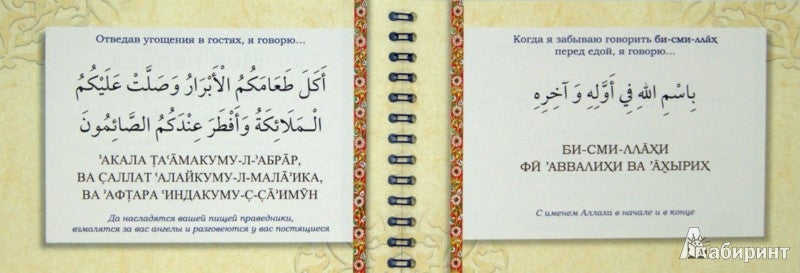 Отведав угощения в гостях, я говорю...
أَكَلَ طَعَامَكُمُ الْأَبْرَارُ وَصَلَّتْ عَلَيْكُمُ
الْمَلَائِكَةُ وَأَفْطَرَ عِنْدَكُمُ الصَّائِمُونَ
ʼАКАЛА Т̣АʻА̄МАКУМУ-Л-ʼАБРА̄Р,
ВА С̣АЛЛАТ ʻАЛАЙКУМУ-Л-МАЛА̄ʼИКА,
ВА ʼАФТ̣АРА ʻИНДАКУМУ-С̣-С̣А̄ʼИМӮН
Да насладятся вашей пищей праведники,
взмолятся за вас ангелы и разговеются у вас постящиеся
Когда я забываю говорить би-сми-лла̄х̣
перед едой, я говорю...
بِاسْمِ اللهِ فِي أَوَّلِهِ وَ آخِرِهِ
БИ-СМИ-ЛЛА̄Х̣И
ФӢ ʼАВВАЛИХ̣И ВА ʼА̄Х̮ЫРИХ̣
С именем Аллаха в начале и в конце
Лабиринт